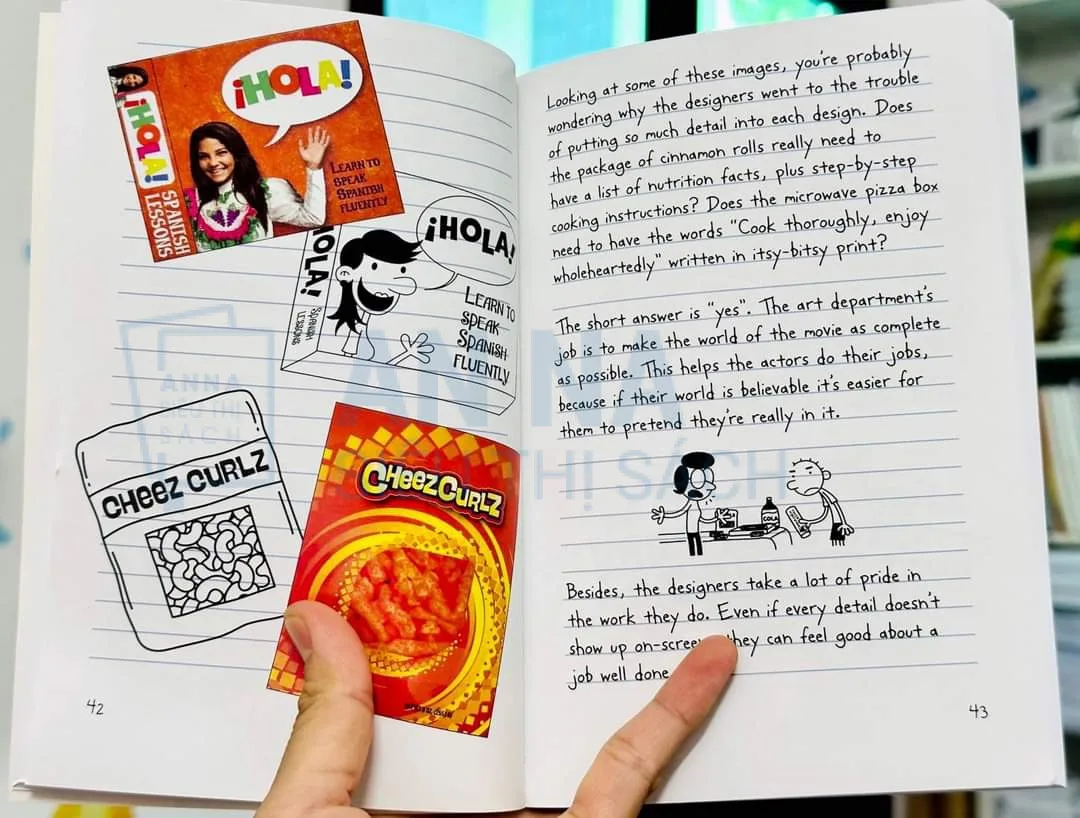 ¡HOLA!
¡HOLA!
SPANISH
LESSONS
LEARN TO
SPEAK
SPANISH
FLUENTLY
¡HOLA!
SPANISH
LESSONS
LEARN TO
SPEAK
SPANISH
FLUENTLY
CHEEZ CURLZ
CHEEZ CURLZ
42
Looking at some of these images, you're probably
wondering why the designers went to the trouble
of putting so much detail into each design. Does
the package of cinnamon rolls really need to
have a list of nutrition facts, plus step-by-step
cooking instructions? Does the microwave pizza box
need to have the words "Cook thoroughly, enjoy
wholeheartedly" written in itsy-bitsy print?
The short answer is "yes". The art department's
job is to make the world of the movie as complete
as possible. This helps the actors do their jobs,
because if their world is believable it's easier for
them to pretend they're really in it.
COLA
Besides, the designers take a lot of pride in
the work they do. Even if every detail doesn't
show up on-screen they can feel good about a
job well done
43
ANNA
SIÊU THỊ
SÁCH
AN NA
SIÊU THỊ SÁCH